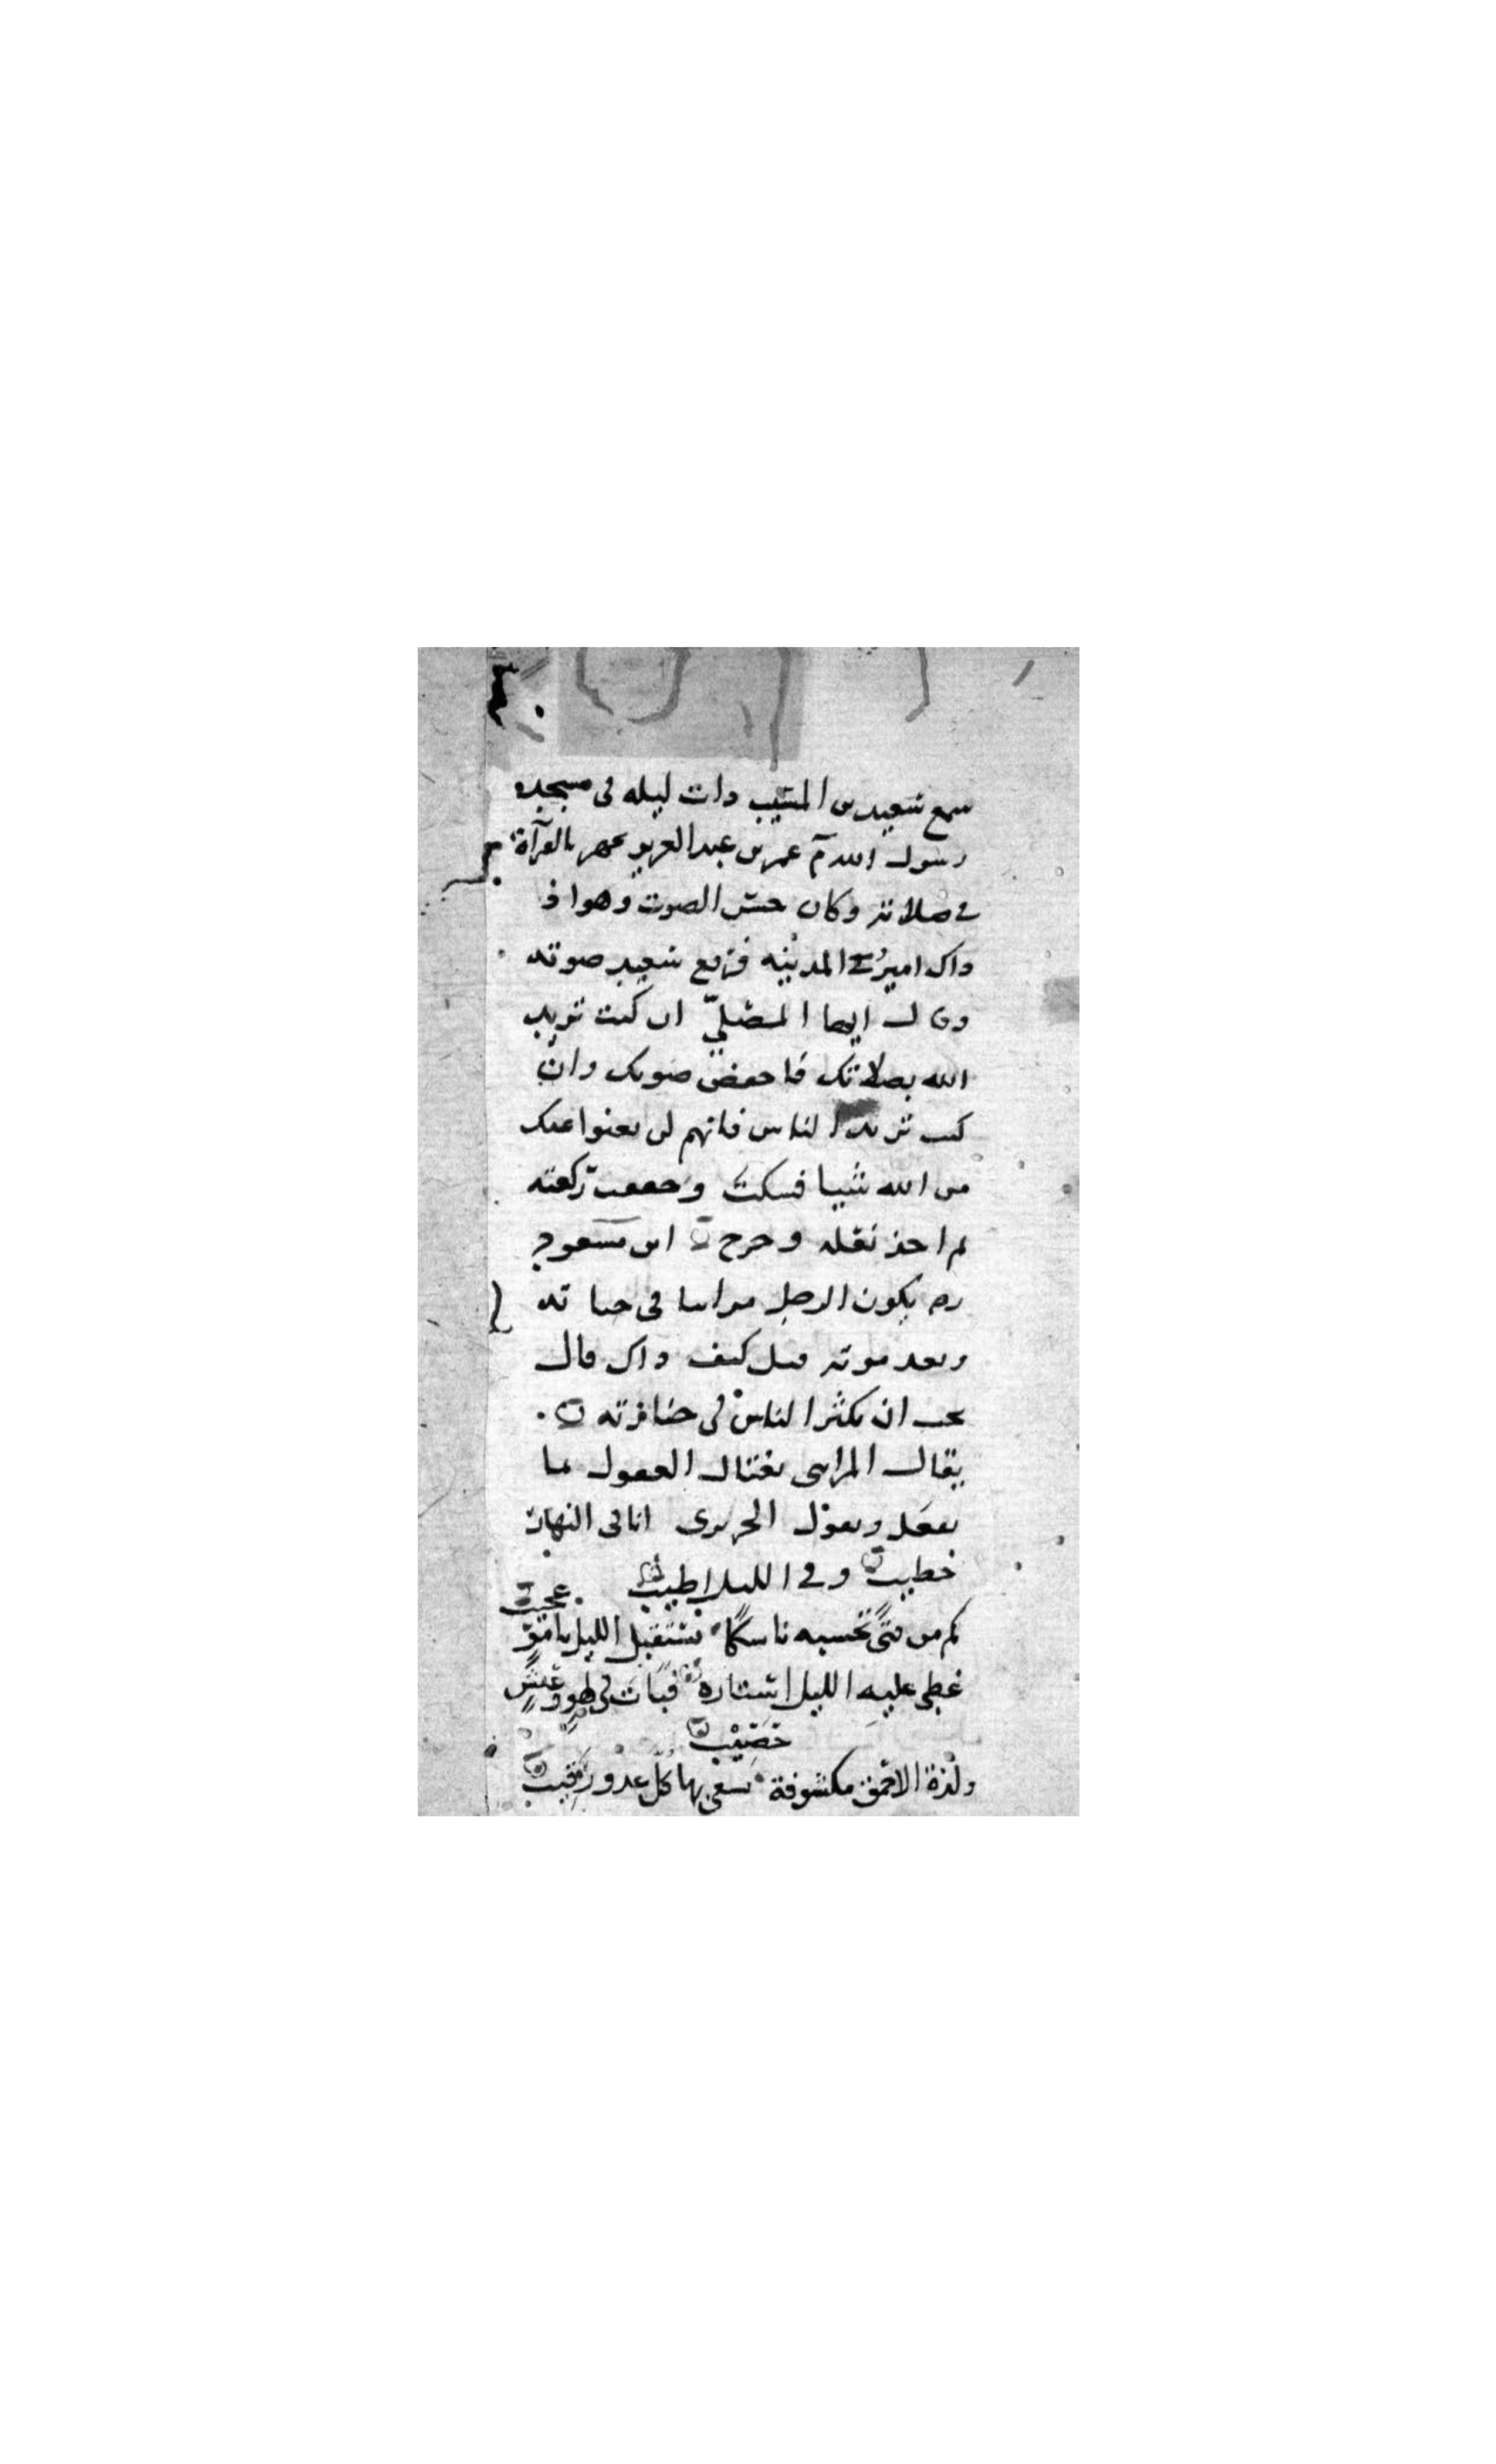 سمع سعيد بن المسيب ذات ليله في مسجد
رسول الله عمر بن عبد العزيز يجهر بالقرآة
في صلاته وكان حسن الصوت وهو اذ
ذاك امير في المدينه فرفع سعيد صوته
وقال ايها المصلي ان كنت تريد
الله بصلاتك فاخفض صوتك وان
كنت تريد الناس فانهم لن يغنوا عنك
من الله شيا فسكت وخفف ركعته
ثم اخذ نعله وخرج ابن مسعود
رح يكون الرجل مرائيا في حياته
وبعد موته قيل كيف ذاك قال
يحب ان يكثر الناس في جنازته
يقال المرائي يغتال العقول بما
يفعل ويقول الحريري انا في النهار
خطيب وفي الليل اطيب
كم من فتى تحسبه ناسكا يستقبل الليل بامر عجيب
غطى عليه الليل استاره فبات في لهو وعيش
خصيب
ولذة الاحمق مكشوفة يسعى بها كل عدو رقيب